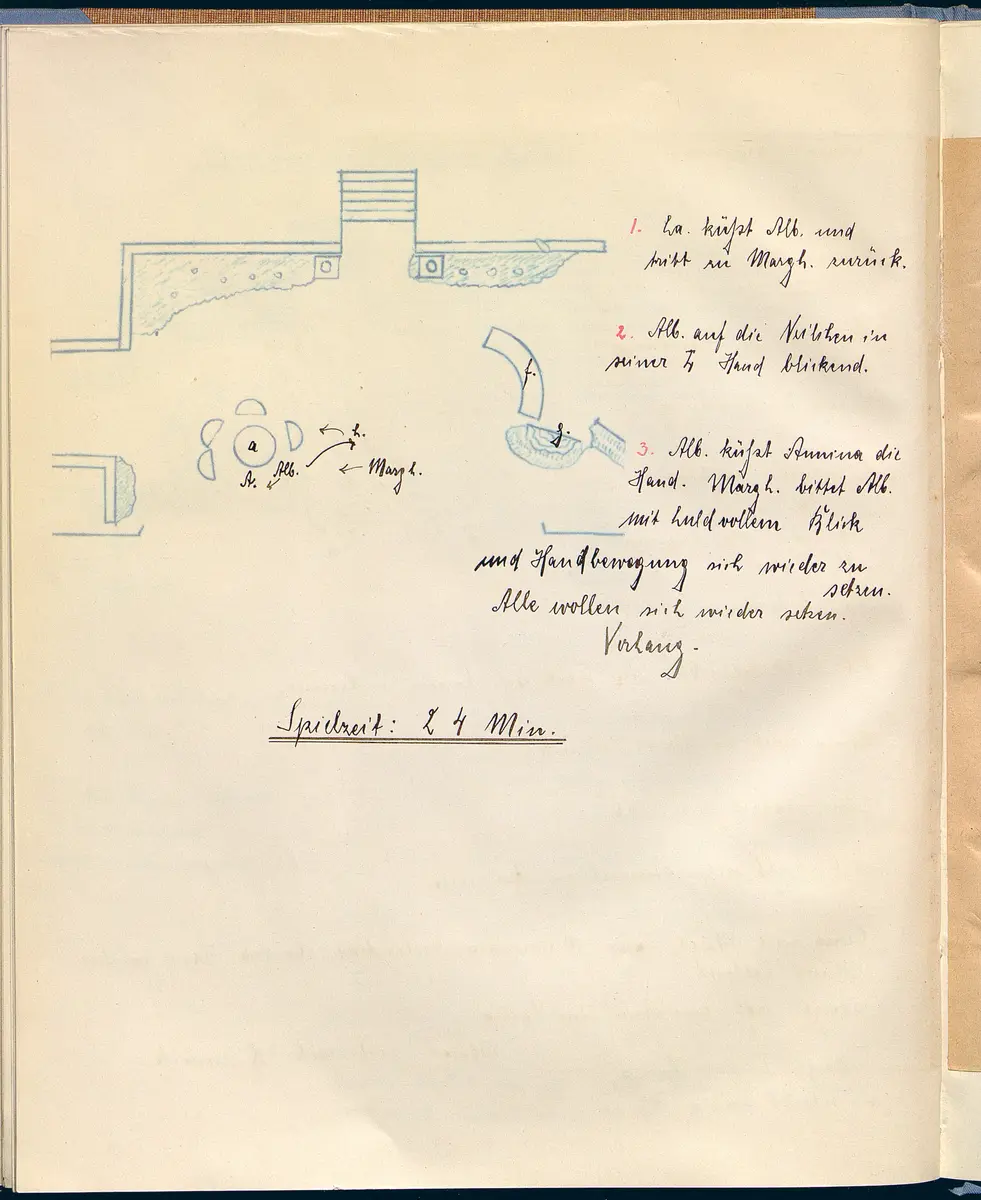 1. La. küßt Alb. und
tritt zu Margh. zurück.
2. Alb. auf die Veilchen in
seiner Hand blickend.
f.
g.
a
L.
Alb.
A.
Margh.
3. Alb. küßt Annina die
Hand. Margh. bittet Alb.
mit huldvollem Blick
und Handbewegung sich wieder zu
setzen.
Alle wollen sich wieder setzen.
Vorhang.
Spielzeit: 24 Min.